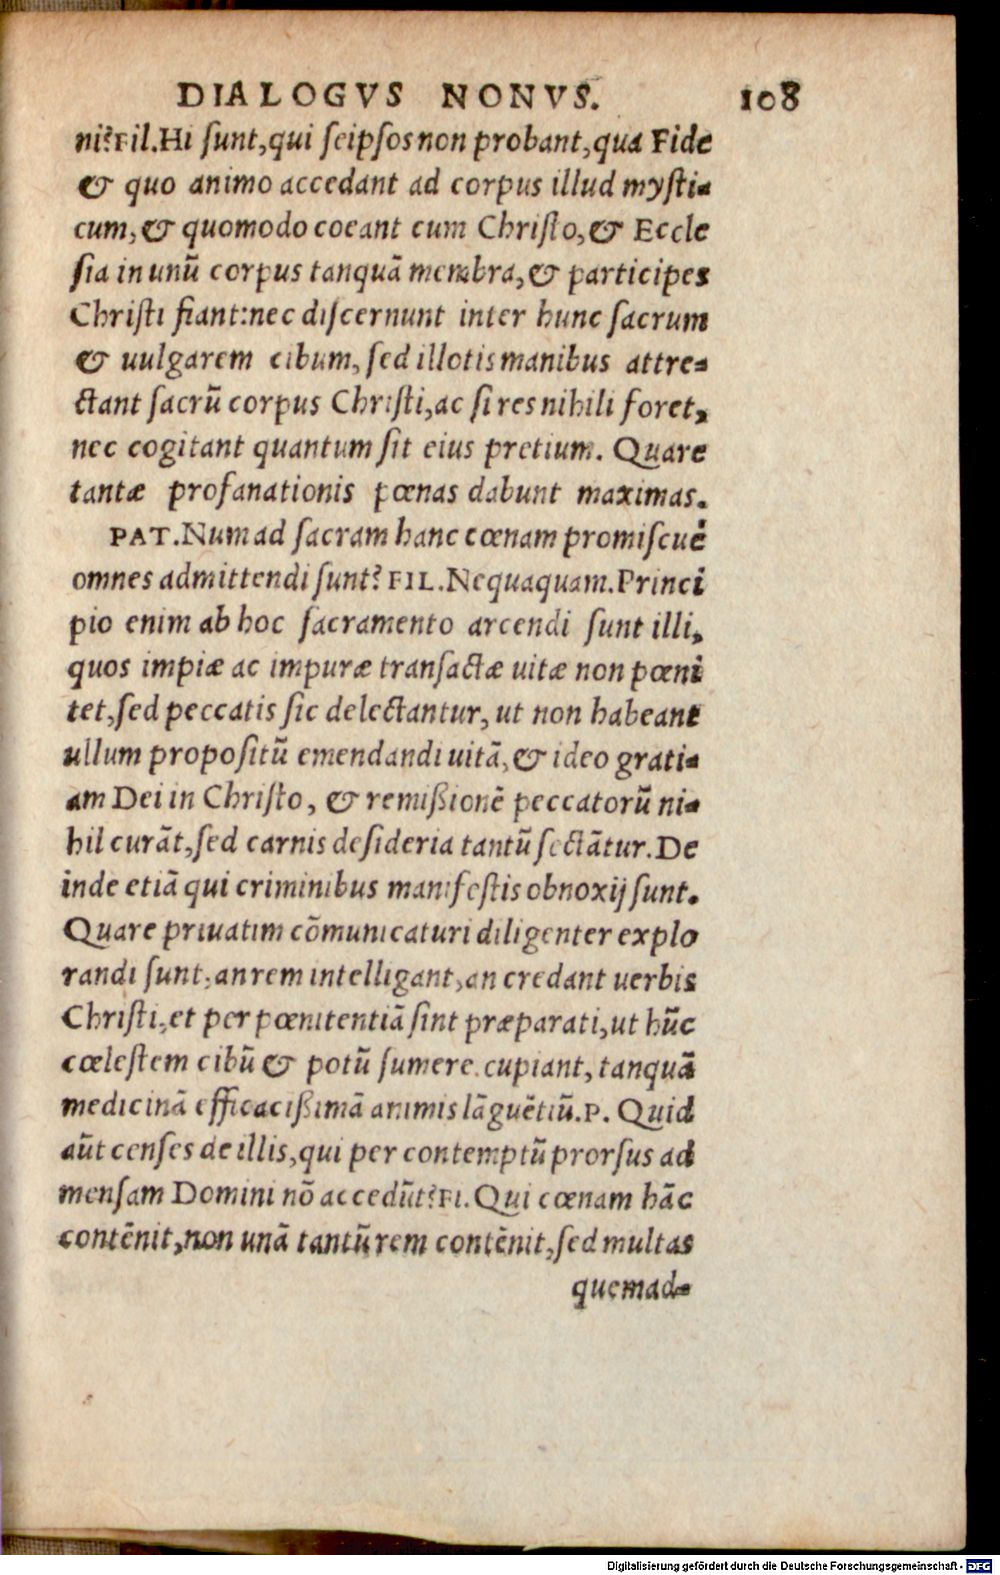 DIALOGVS NONVS. 108
ni? Fil. Hi sunt, qui seipsos non probant, qua Fide
& quo animo accedant ad corpus illud mysti-
cum, & quomodo coeant cum Christo, & Eccle
sia in unũ corpus tanquã membra, & participes
Christi fiant: nec discernunt inter hunc sacrum
& uulgarem cibum, sed illotis manibus attre-
ctant sacrũ corpus Christi, ac si res nihili foret,
nec cogitant quantum sit eius pretium. Quare
tantæ profanationis pœnas dabunt maximas.
PAT. Num ad sacram hanc cœnam promiscuè
omnes admittendi sunt? FIL. Nequaquam. Princi
pio enim ab hoc sacramento arcendi sunt illi,
quos impiæ ac impuræ transactæ uitæ non pœni
tet, sed peccatis sic delectantur, ut non habeant
ullum propositũ emendandi uitã, & ideo grati-
am Dei in Christo, & remißionẽ peccatorũ ni-
hil curãt, sed carnis desideria tantũ sectãtur. De
inde etiã qui criminibus manifestis obnoxij sunt.
Quare priuatim cõmunicaturi diligenter explo
randi sunt, an rem intelligant, an credant uerbis
Christi, et per pœnitentiã sint præparati, ut hũc
cœlestem cibũ & potũ sumere cupiant, tanquã
medicinã efficacißimã animis lãguẽtiũ. P. Quid
aũt censes de illis, qui per contemptũ prorsus ad
mensam Domini nõ accedũt? Fi. Qui cœnam hãc
contẽnit, non unã tantũ rem contẽnit, sed multas
quemad-
Digitalisierung gefördert durch die Deutsche Forschungsgemeinschaft - DFG